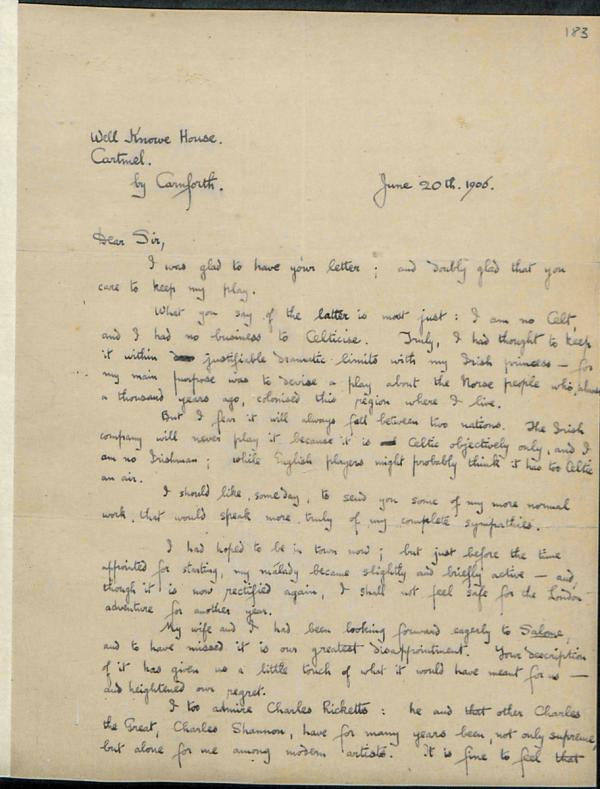 183
Well Knowe House.
Cartmel.
by Carnforth.
June 20th. 1906.
Dear Sir,
I was glad to have your letter ; and doubly glad that you
care to keep my play.
What you say of the latter is most just : I am no Celt,
and I had no business to Celticise. Truly, I had thought to keep
it within justifiable dramatic limits with my Irish princess — for
my main purpose was to devise a play about the Norse people who, about
a thousand years ago, colonised this region where I live.
But I fear it will always fall between two nations. The Irish
company will never play it because it is Celtic objectively only, and I
am no Irishman ; while English players might probably think it has too Celtic
an air.
I should like, someday, to send you some of my more normal
work, that would speak more truly of my complete sympathies.
I had hoped to be in town now ; but just before the time
appointed for starting, my malady became slightly and briefly active — and,
though it is now rectified again, I shall not feel safe for the London
adventure for another year.
My wife and I had been looking forward eagerly to Salome,
and to have missed it is our greatest disappointment. Your description
of it has given us a little touch of what it would have meant for us —
and heightened our regret.
I too admire Charles Ricketts : he and that other Charles
the Great, Charles Shannon, have for many years been, not only supreme,
but alone for me among modern artists. It is fine to feel that